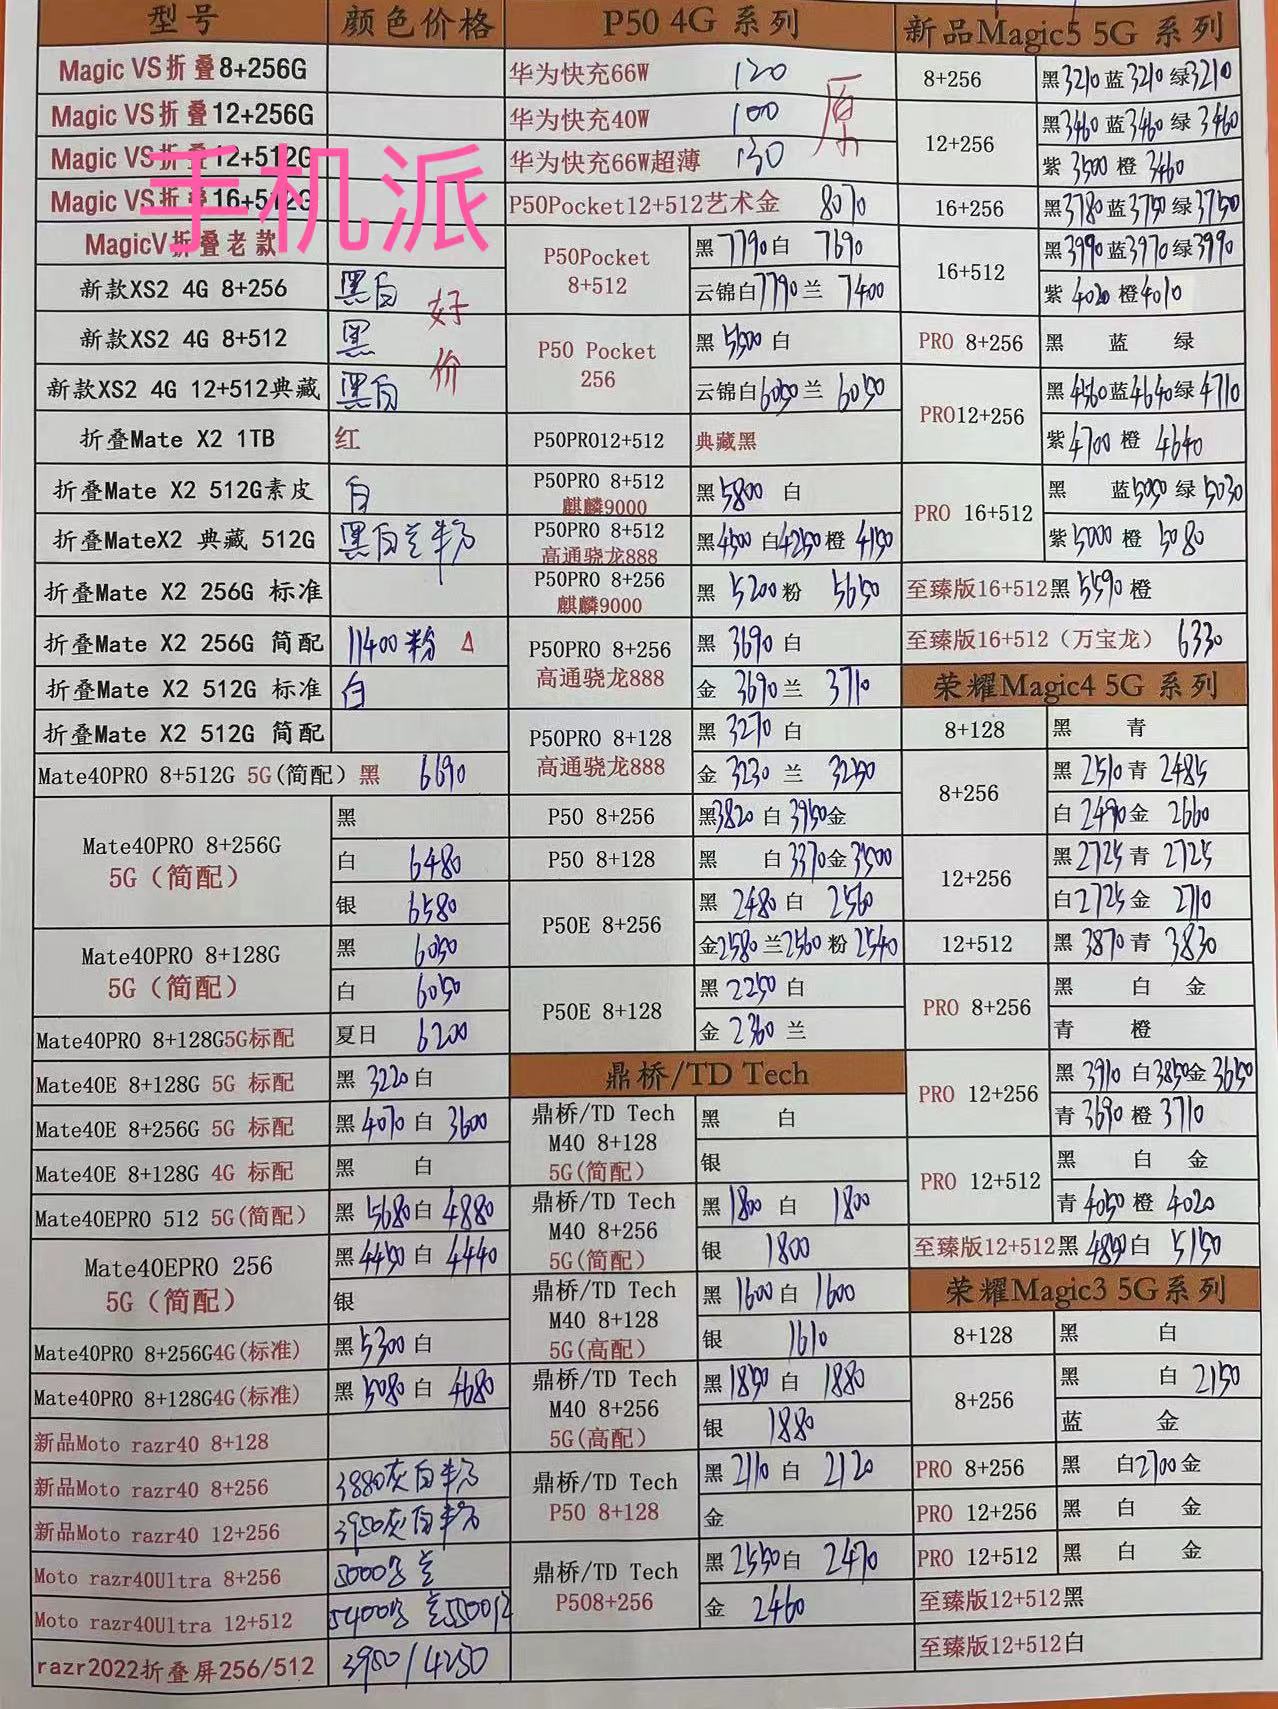 型号 颜色价格
Magic VS折叠8+256G
Magic VS折叠12+256G
Magic VS折叠12+512G
Magic VS折叠16+512G
MagicV折叠老款
手机派
新款XS2 4G 8+256 黑白
新款XS2 4G 8+512 黑
新款XS2 4G 12+512典藏 黑白
好价
折叠Mate X2 1TB 红
折叠Mate X2 512G素皮 白
折叠MateX2 典藏 512G 黑白兰粉
折叠Mate X2 256G 标准
折叠Mate X2 256G 简配 11400粉 Δ
折叠Mate X2 512G 标准 白
折叠Mate X2 512G 简配
Mate40PRO 8+512G 5G(简配)黑 6690
Mate40PRO 8+256G
5G(简配)
黑
白 6480
银 6580
Mate40PRO 8+128G
5G(简配)
黑 6050
白 6050
Mate40PRO 8+128G5G标配 夏日 6200
Mate40E 8+128G 5G 标配 黑3220白
Mate40E 8+256G 5G 标配 黑4070白 3600
Mate40E 8+128G 4G 标配 黑 白
Mate40EPRO 512 5G(简配) 黑5680白4880
Mate40EPRO 256
5G(简配)
黑4450白4440
银
Mate40PRO 8+256G4G(标准) 黑5300白
Mate40PRO 8+128G4G(标准) 黑5080白4680
新品Moto razr40 8+128
新品Moto razr40 8+256 3880灰白粉
新品Moto razr40 12+256 3950灰白粉
Moto razr40Ultra 8+256 5000 兰
Moto razr40Ultra 12+512 5400 兰5500
razr2022折叠屏256/512 3950/4250
P50 4G 系列
华为快充66W 120
华为快充40W 100
华为快充66W超薄 130
原
P50Pocket12+512艺术金 8070
P50Pocket
8+512
黑7790白 7690
云锦白7790兰 7400
P50 Pocket
256
黑5500白
云锦白6050兰 6050
P50PRO12+512 典藏黑
P50PRO 8+512
麒麟9000
黑5800 白
P50PRO 8+512
高通骁龙888
黑4500白4250橙4150
P50PRO 8+256
麒麟9000
黑 5200粉 5650
P50PRO 8+256
高通骁龙888
黑 3690白
金 3690兰 3710
P50PRO 8+128
高通骁龙888
黑 3270白
金 3230兰 3250
P50 8+256 黑3820白3950金
P50 8+128 黑 白3370金3500
P50E 8+256
黑 2480白 2560
金2580兰2560粉2540
P50E 8+128
黑2250白
金 2360兰
鼎桥/TD Tech
鼎桥/TD Tech
M40 8+128
5G(简配)
黑 白
银
鼎桥/TD Tech
M40 8+256
5G(简配)
黑1800 白 1800
银 1800
鼎桥/TD Tech
M40 8+128
5G(高配)
黑 1600白 1600
银 1610
鼎桥/TD Tech
M40 8+256
5G(高配)
黑1850白 1880
银 1880
鼎桥/TD Tech
P50 8+128
黑2110白 2120
金
鼎桥/TD Tech
P508+256
黑2550白 2470
金 2460
新品Magic5 5G 系列
8+256 黑3210蓝3210绿3210
12+256
黑3460蓝3460绿3460
紫3500橙3460
16+256 黑3780蓝3750绿3750
16+512
黑3990蓝3970绿3990
紫4020橙4010
PRO 8+256 黑 蓝 绿
PRO12+256
黑4560蓝4640绿4710
紫4700橙4640
PRO 16+512
黑 蓝5050绿5030
紫5000橙 5080
至臻版16+512黑5590橙
至臻版16+512(万宝龙) 6330
荣耀Magic4 5G 系列
8+128 黑 青
8+256
黑2510青2485
白2490金2660
12+256
黑2725青2725
白2725金 2710
12+512 黑3870青3830
PRO 8+256
黑 白 金
青 橙
PRO 12+256
黑3910白3850金3650
青3690橙3710
PRO 12+512
黑 白 金
青4050橙4020
至臻版12+512黑4850白 5150
荣耀Magic3 5G系列
8+128 黑 白
8+256
黑 白2150
蓝 金
PRO 8+256 黑 白2700金
PRO 12+256 黑 白 金
PRO 12+512 黑 白 金
至臻版12+512黑
至臻版12+512白